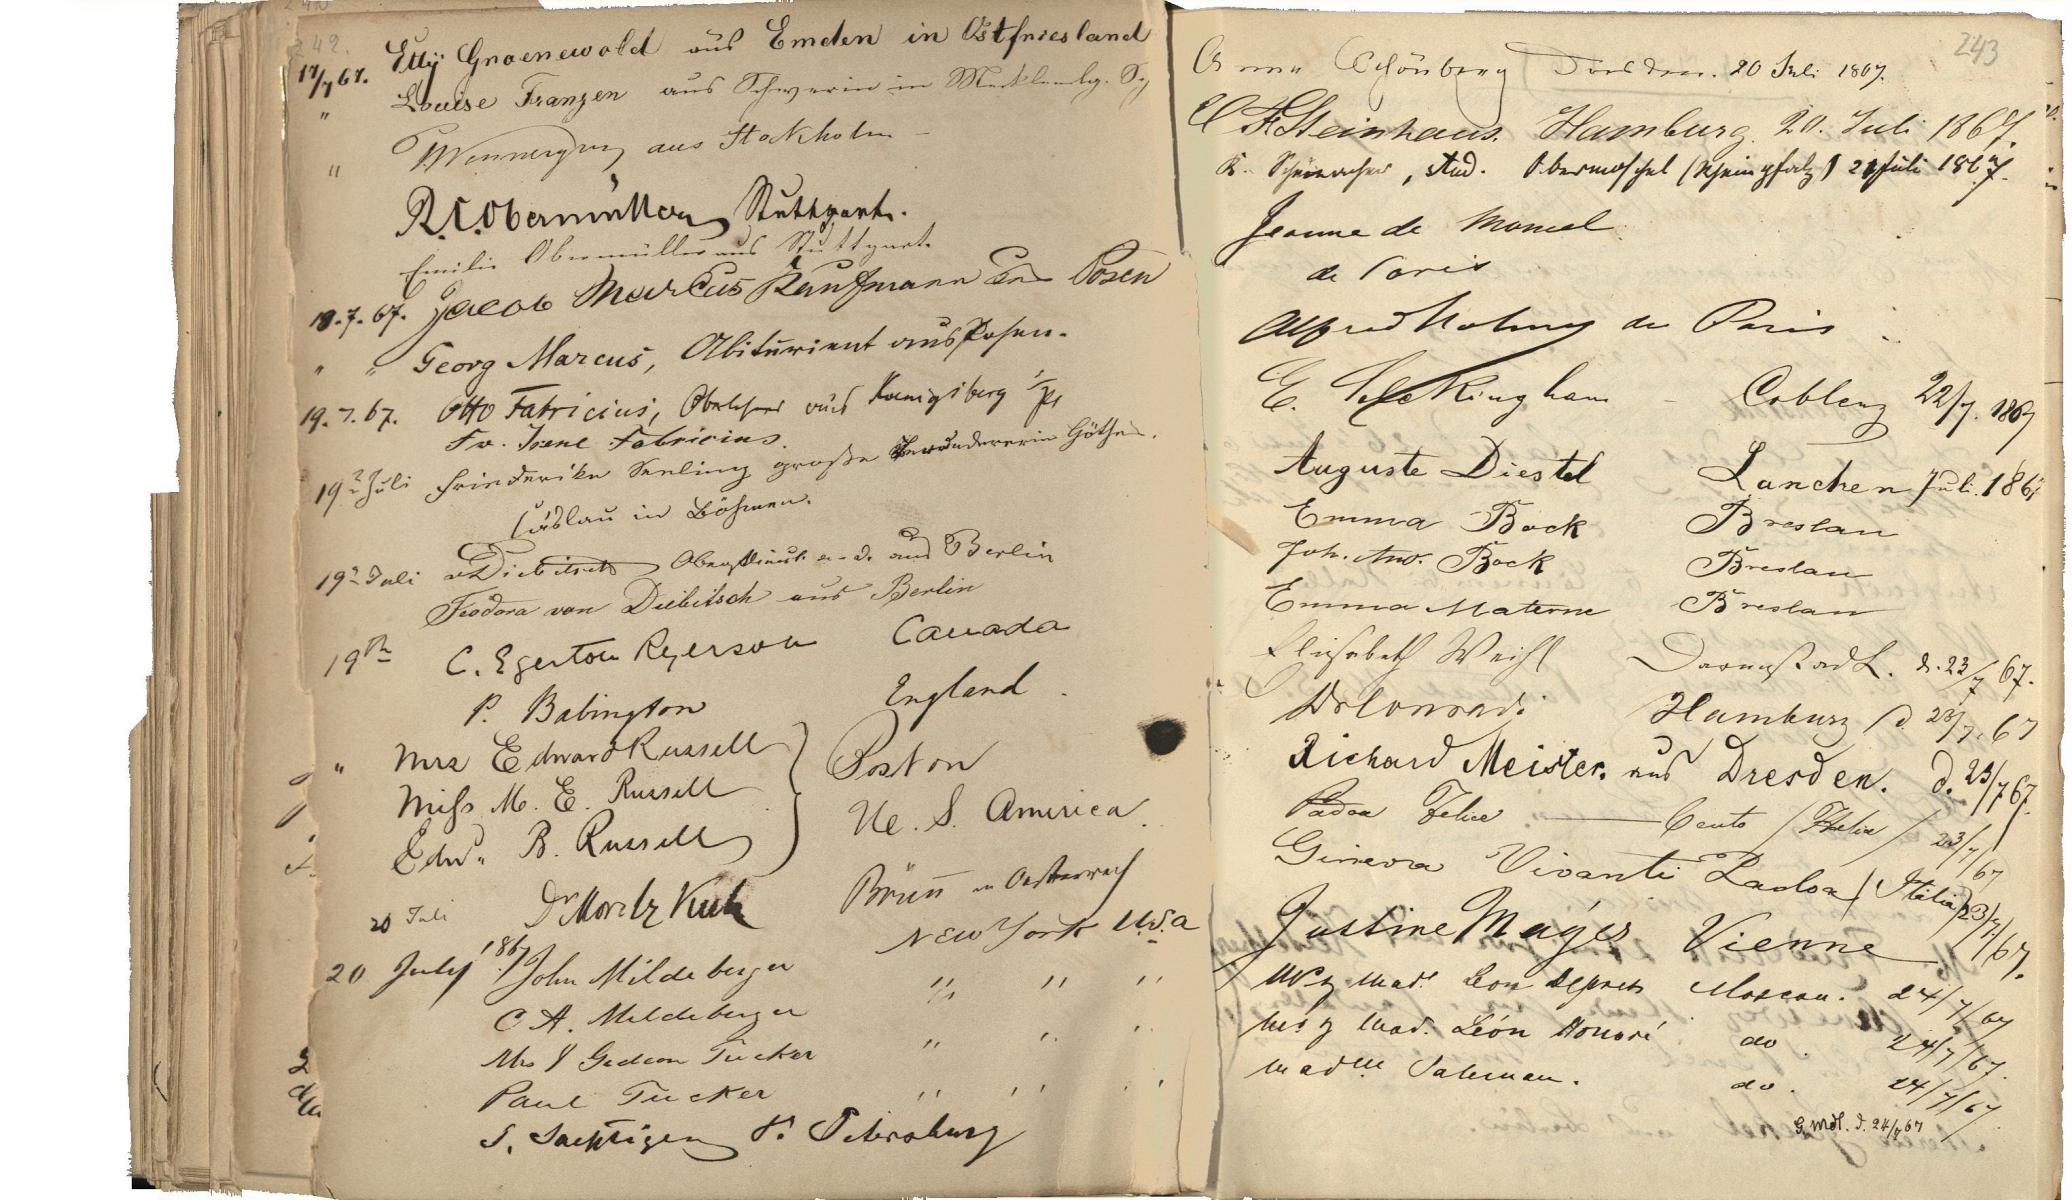 242.
17/7 67. Etty Groenewold aus Emden in Ostfriesland
" Louise Franzen aus Schwerin in Mecklenbg.
" aus Stockholm
R.C. Obermüller Stuttgart.
Emilie Obermüller aus Stuttgart.
18.7.67. Jacob Marcus Kaufmann Posen
" " Georg Marcus, Abiturient aus Posen.
19.7.67. Otto Fabricius, Oberlehrer aus Koenigsberg
Fr. Irene Fabricius.
19 Juli Friederike große Göthes.
Caslau in Böhmen.
19 Juli v Diebitsch Oberstlieut. a. D. aus Berlin
Feodora von Diebitsch aus Berlin
19th C. Egerton Ryerson Canada
P. Babington England
" Mrs Edward Russell
Miss M. E. Russell Boston
Edw. B. Russell U. S. America.
20 Juli Dr Moritz Brünn in Oesterreich
20 July 1867 John Mildeberger New York U.S.A
C A. Mildeberger " " "
Mrs J Gideon Tucker " " "
Paul Tucker " " "
St. Petersburg
243
Anna Schönberg Dresden. 20 Juli 1867.
Steinhaus. Hamburg 20. Juli 1867.
K. , stud. Obermoschel (Rheinpfalz) 21 Juli 1867.
Jeanne de
de Paris
Alfred de Paris
E. Coblenz 22/7. 1867
Auguste Diestel Lanchen Juli. 1867
Emma Bock Breslau
Joh. Ant. Bock Breslau
Emma Materne Breslau
Elisabeth Weihl Darmstadt. d. 23/7 67.
Dr Conradi Hamburg d 23/7.67
Richard Meister. aus Dresden. d. 23/7 67.
Padoa Felice Cento (Italia) 23/7/67
Ginevra Vivanti Padoa (Italia) 23/7/67.
Justine Mayer Vienne
Mr & Mad. Leon Moscou. 24/7/67
Mr & Mad. Léon Honoré do 24/7/67.
Madme do. 24/7/67
G. Mdl. d. 24/7 67